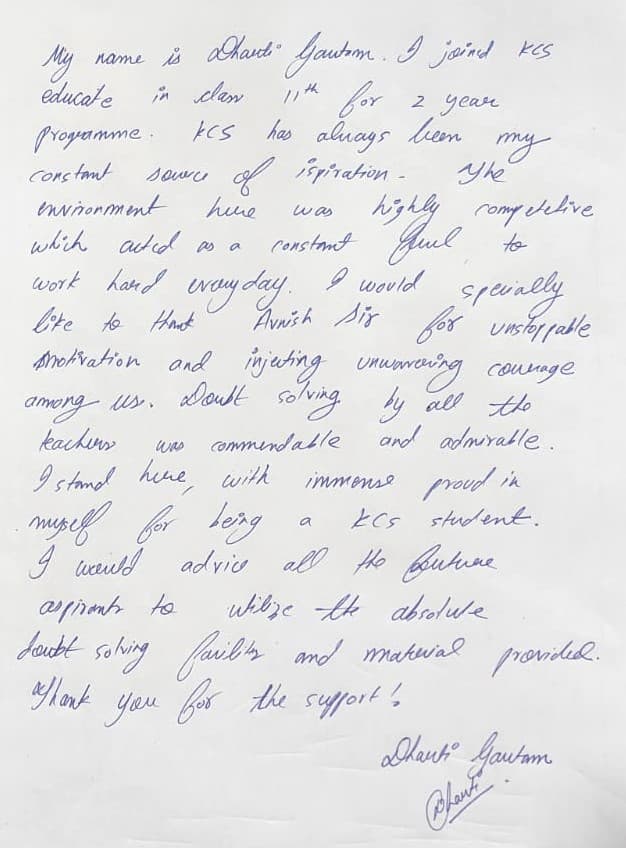 My name is Dhanti Gautam. I joined KCS
educate in class 11th for 2 year
programme. KCS has always been my
constant source of ispiration. The
environment here was highly competetive
which acted as a constant fuel to
work hard everyday. I would specially
like to thank Avnish Sir for unstoppable
motivation and injecting unwavering courage
among us. Doubt solving by all the
teachers was commendable and admirable.
I stand here, with immense proud in
myself for being a KCS student.
I would advice all the future
aspirants to utilize the absolute
doubt solving facility and material provided.
Thank you for the support!
Dhanti Gautam
Dhanti